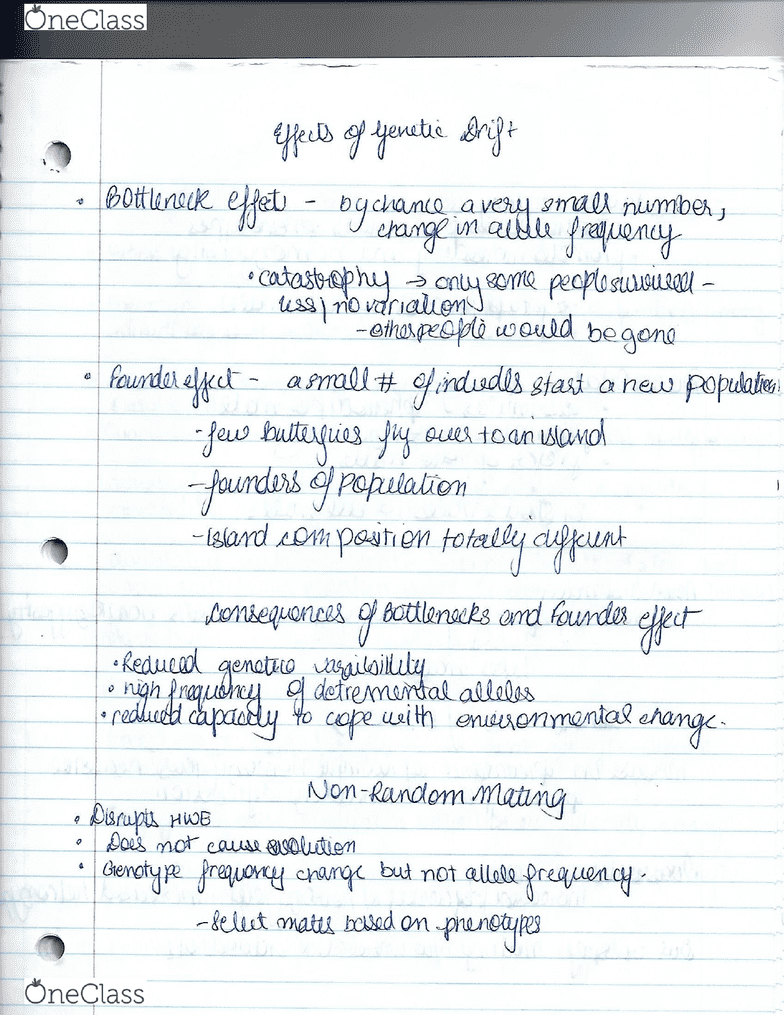 OneClass
Effects of Genetic Drift
• Bottleneck effect - by chance a very small number,
change in allele frequency
• catastrophy → only some people survived -
less/no variation
- other people would be gone
• Founder effect - a small # of indivdls start a new population.
- few butterflies fly over to an island
- founders of population
- Island composition totally different
Consequences of Bottlenecks and Founder effect
• Reduced genetic
• high frequency of detremental alleles
• reduced capacity to cope with environmental change.
Non-Random Mating
• Disrupts HWE
• Does not cause evolution
• Genotype frequency change but not allele frequency.
- Select mates based on phenotypes
OneClass